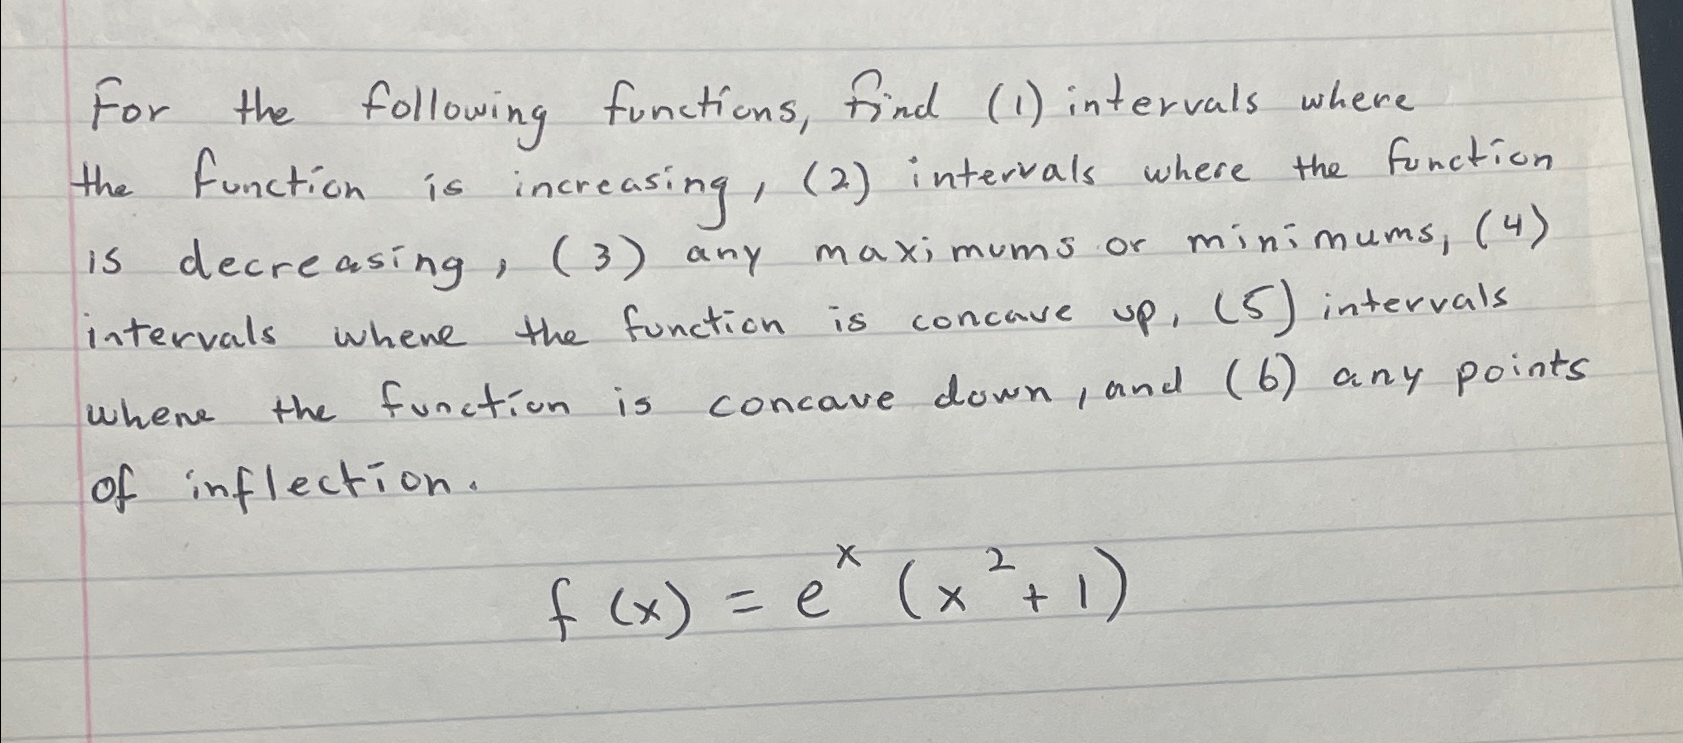 For the following functions, find (1) intervals where
the function is increasing, (2) intervals where the function
is decreasing, (3) any maximums or minimums, (4)
intervals where the function is concave up, (5) intervals
where the function is concave down, and (6) any points
of inflection.
f(x) = e^x (x^2 + 1)